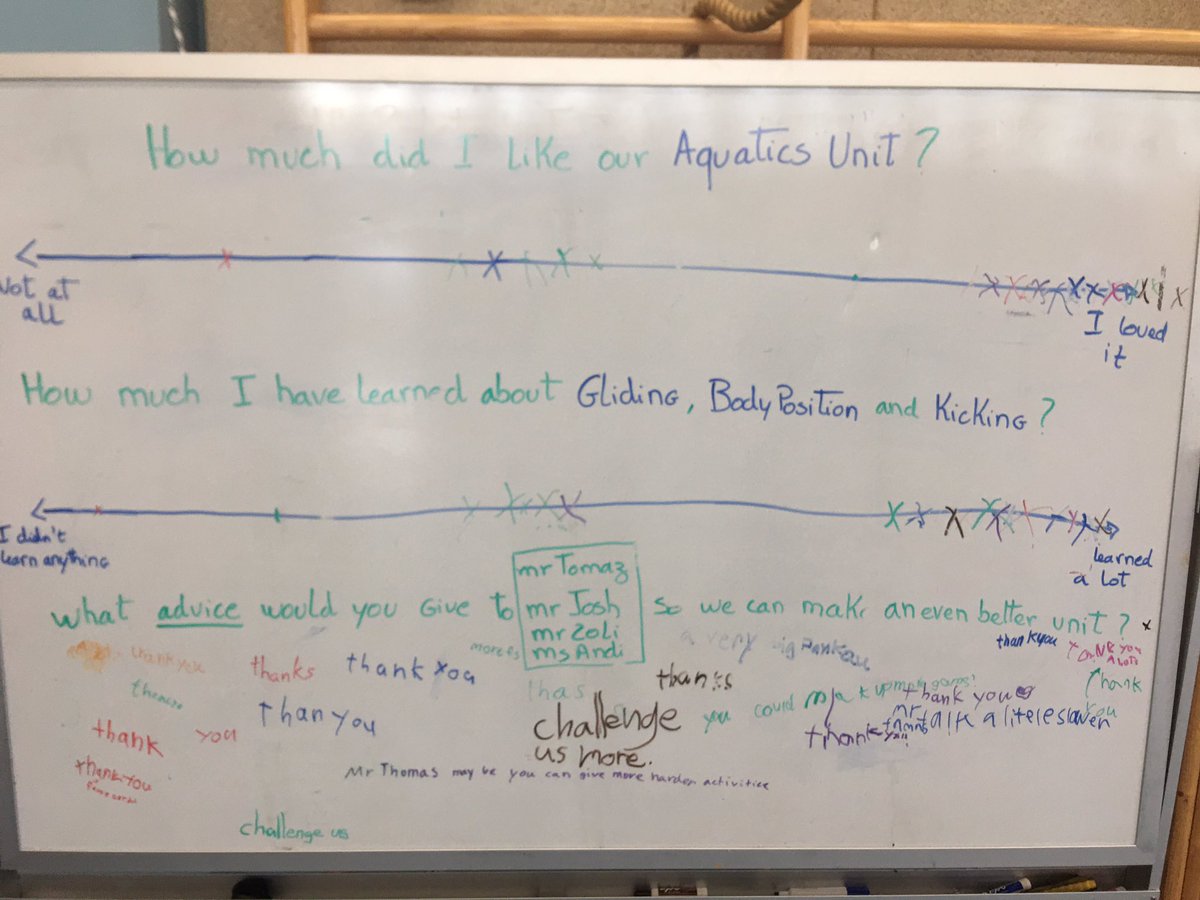 How much did I Like our Aquatics Unit?
Not at
all
I loved
it
How much I have learned about Gliding, Body Position and Kicking?
I didn't
learn anything
learned
a lot
What advice would you give to
mr Tomaz
mr Josh
mr Zoli
ms Andi
so we can makr an even better unit?
thank you
thanks
thank you
thanks
thank you
THANK YOU
A LOTS
Thank
you
thank you
thas
thank you
thanyou
challenge
us more.
you could
thank you
mr
talk a litele slower
thank you!!
thank you
Mr Thomas may be you can give more harder activities
challenge us